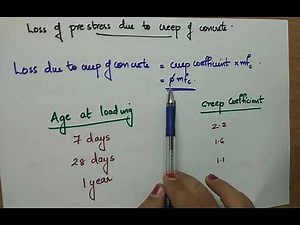 Loss of prestress due to creep of concrete.
Loss due to creep of concrete = creep coefficient × mfc
= φ mfc.
Age at loading creep coefficient
7 days 2.2
28 days 1.6
1 year 1.1